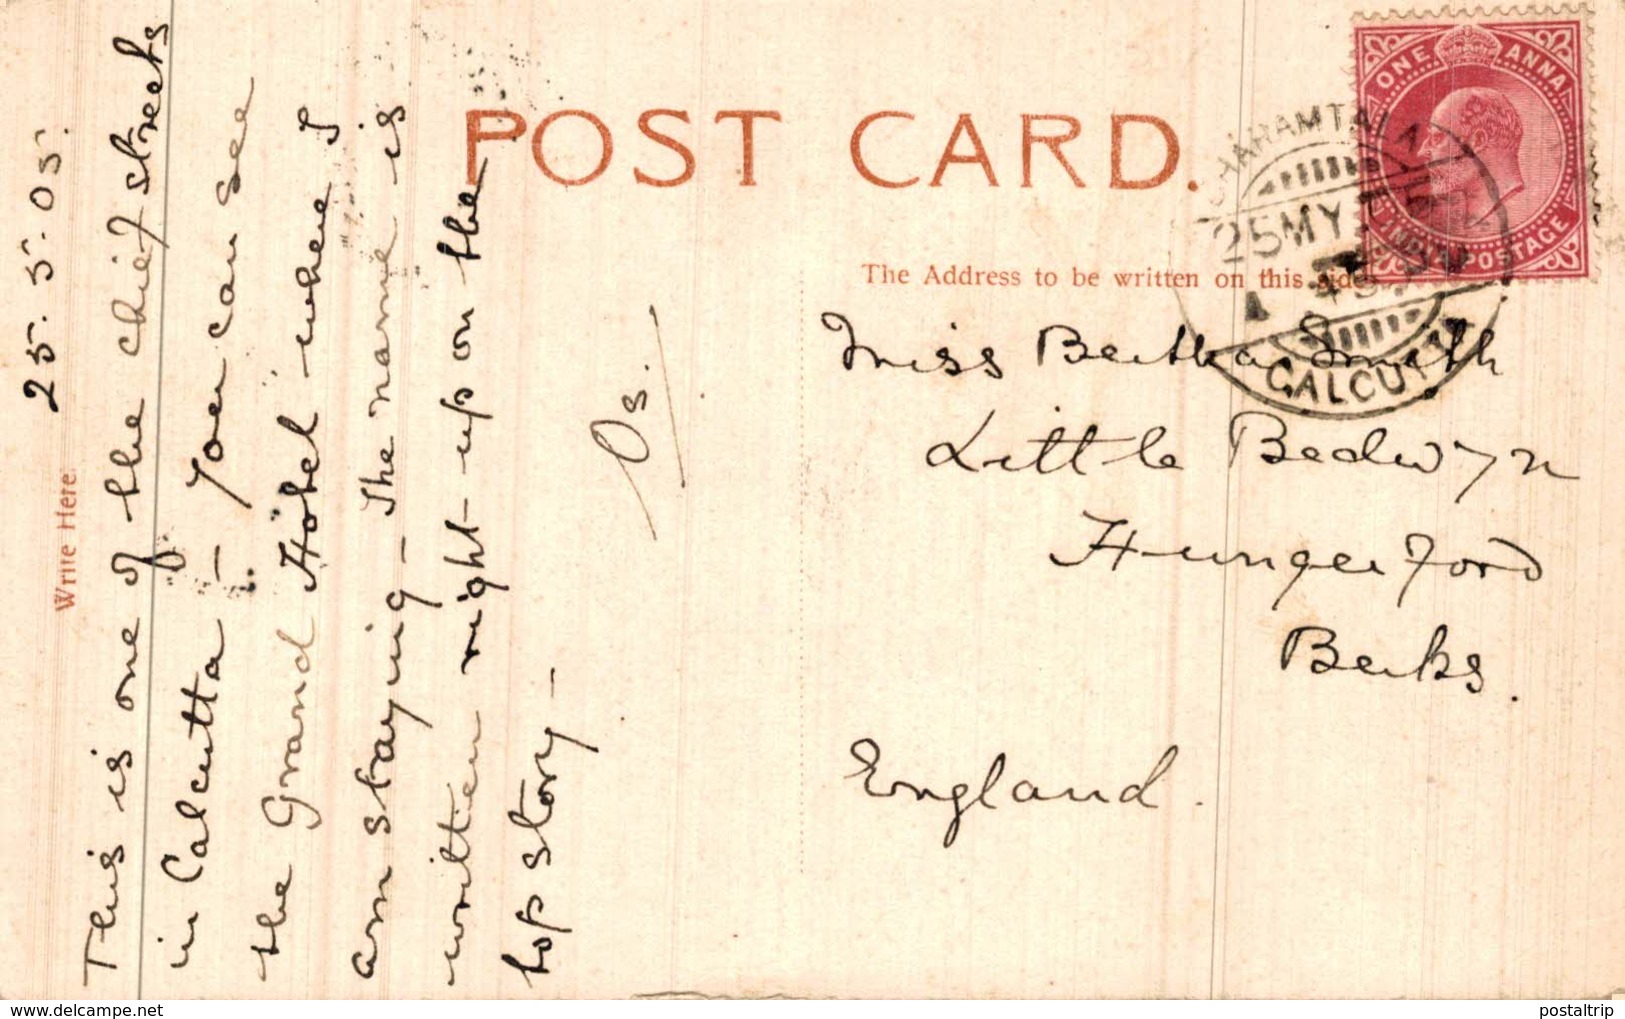 POST CARD.
Write Here.
The Address to be written on this side.
25.5.05.
This is one of the chief streets
in Calcutta - You can see
the Grand Hotel where I
am staying - The name is
written right up on the
top story -
Os.
Miss Bertha Smith
Little Bedwyn
Hungerford
Berks.
England.
ONE ANNA
INDIA POSTAGE
DHARAMTALA
25 MY
CALCUTTA
www.delcampe.net
postaltrip